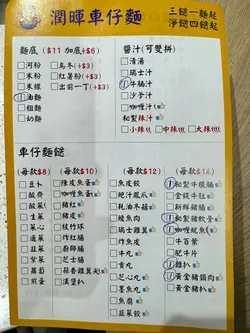 潤暉車仔麵
三餸一麵起
淨餸四餸起
麵底 ($11 加底+$6) 醬汁(可雙拼)
河粉 烏冬(+$3) 清湯
米粉 紅薯粉(+$3) 瑞士汁
米線 出前一丁(+$3) 牛腩汁
油麵 沙爹汁
粗麵 咖喱汁
幼麵 秘製辣汁
小辣 中辣 大辣
車仔麵餸
(每款$8) (每款$10) (每款$12) (每款$14)
豆卜 陳皮魚蛋 魚皮餃 秘製牛腩
韭菜 咖喱魚蛋 鮑汁鳳爪 金錢牛肚
酸菜 豬紅 蚝油冬菇 新鮮豬腸
生菜 豬皮 鯪魚肉 秘製豬軟骨
菜心 枝竹 瑞士雞翼 咖喱魷魚
通菜 炸豆卜 炸魚皮 牛百葉
韮菜 魚角 牛丸 肥牛片
紫菜 豬膶 貢丸 雞扒
蘿蔔 蒜香雞翼尖 芝心丸 黃金豬頸肉
煎蛋 漢堡扒 墨魚丸 黃金豬扒
魚腐
韭菜餃